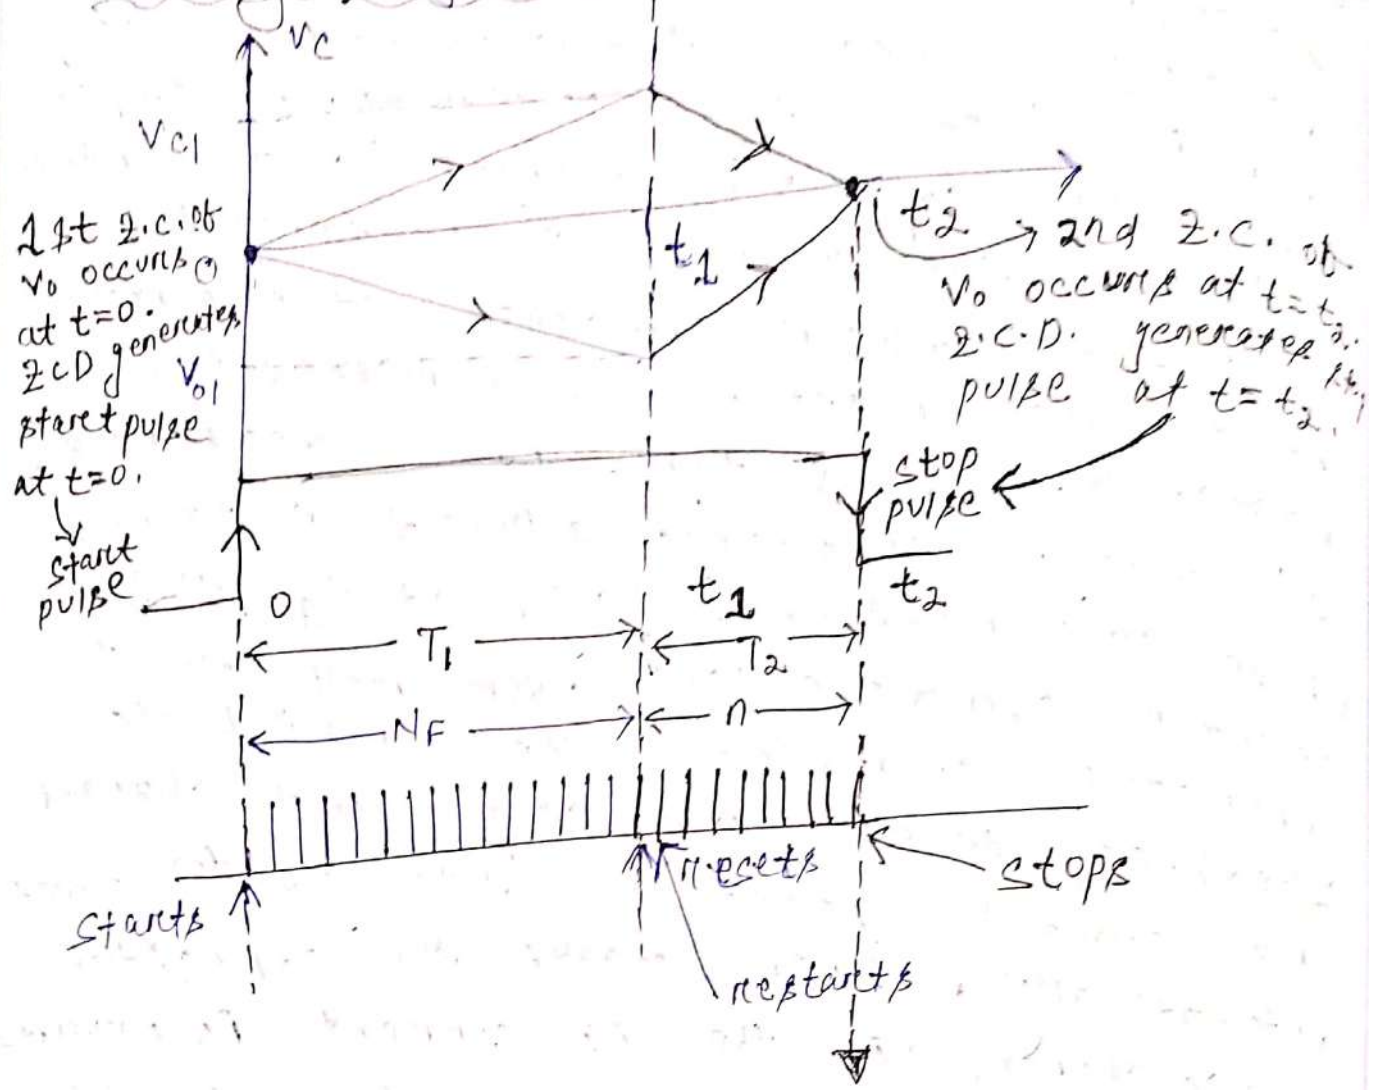 Vc
Vc1
1st z.c. of
Vo occurs
at t=0.
ZCD generates
start pulse
at t=0.
start
pulse
0
0
Vo1
t1
t2
2nd z.c. of
Vo occurs at t=t2.
Z.C.D. generates
pulse at t=t2.
stop
pulse
t1
t2
T1
T2
NF
n
starts
resets
restarts
stops